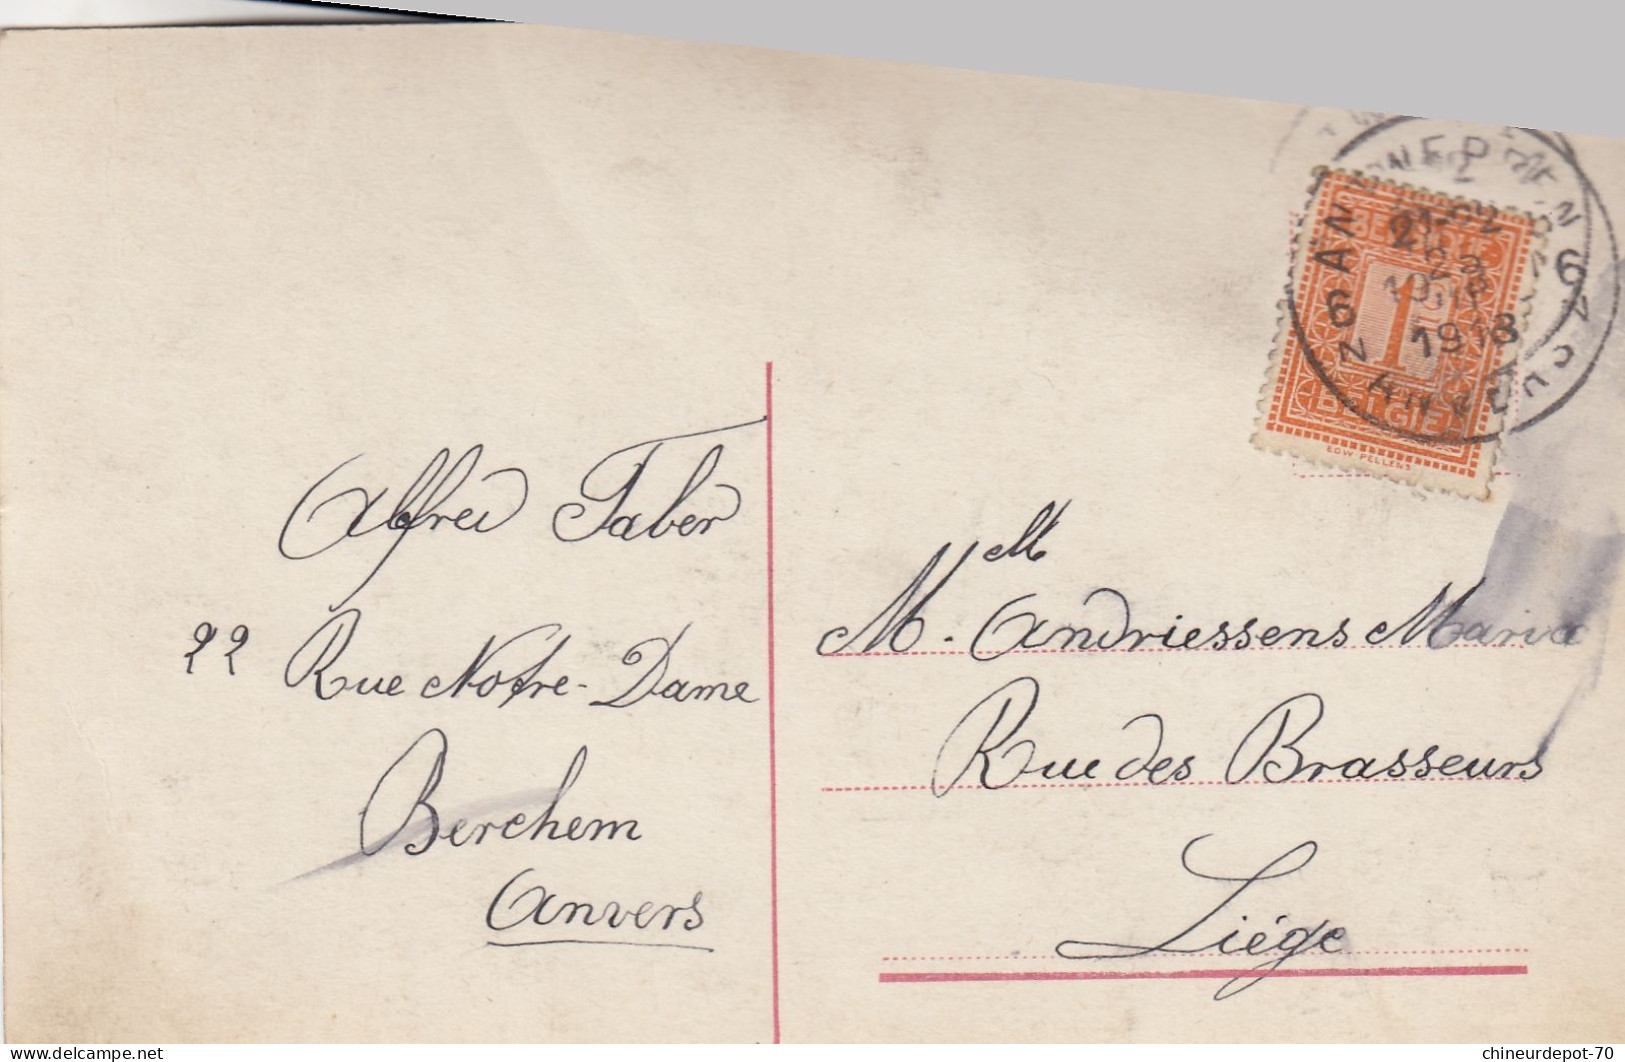 Alfred Faber
22 Rue Notre-Dame
Berchem
Anvers
Melle
M. Andriessens Maria
Rue des Brasseurs
Liége
BELGIË
1
EDW. PELLENS
1913
delcampe.net
chineurdepot-70